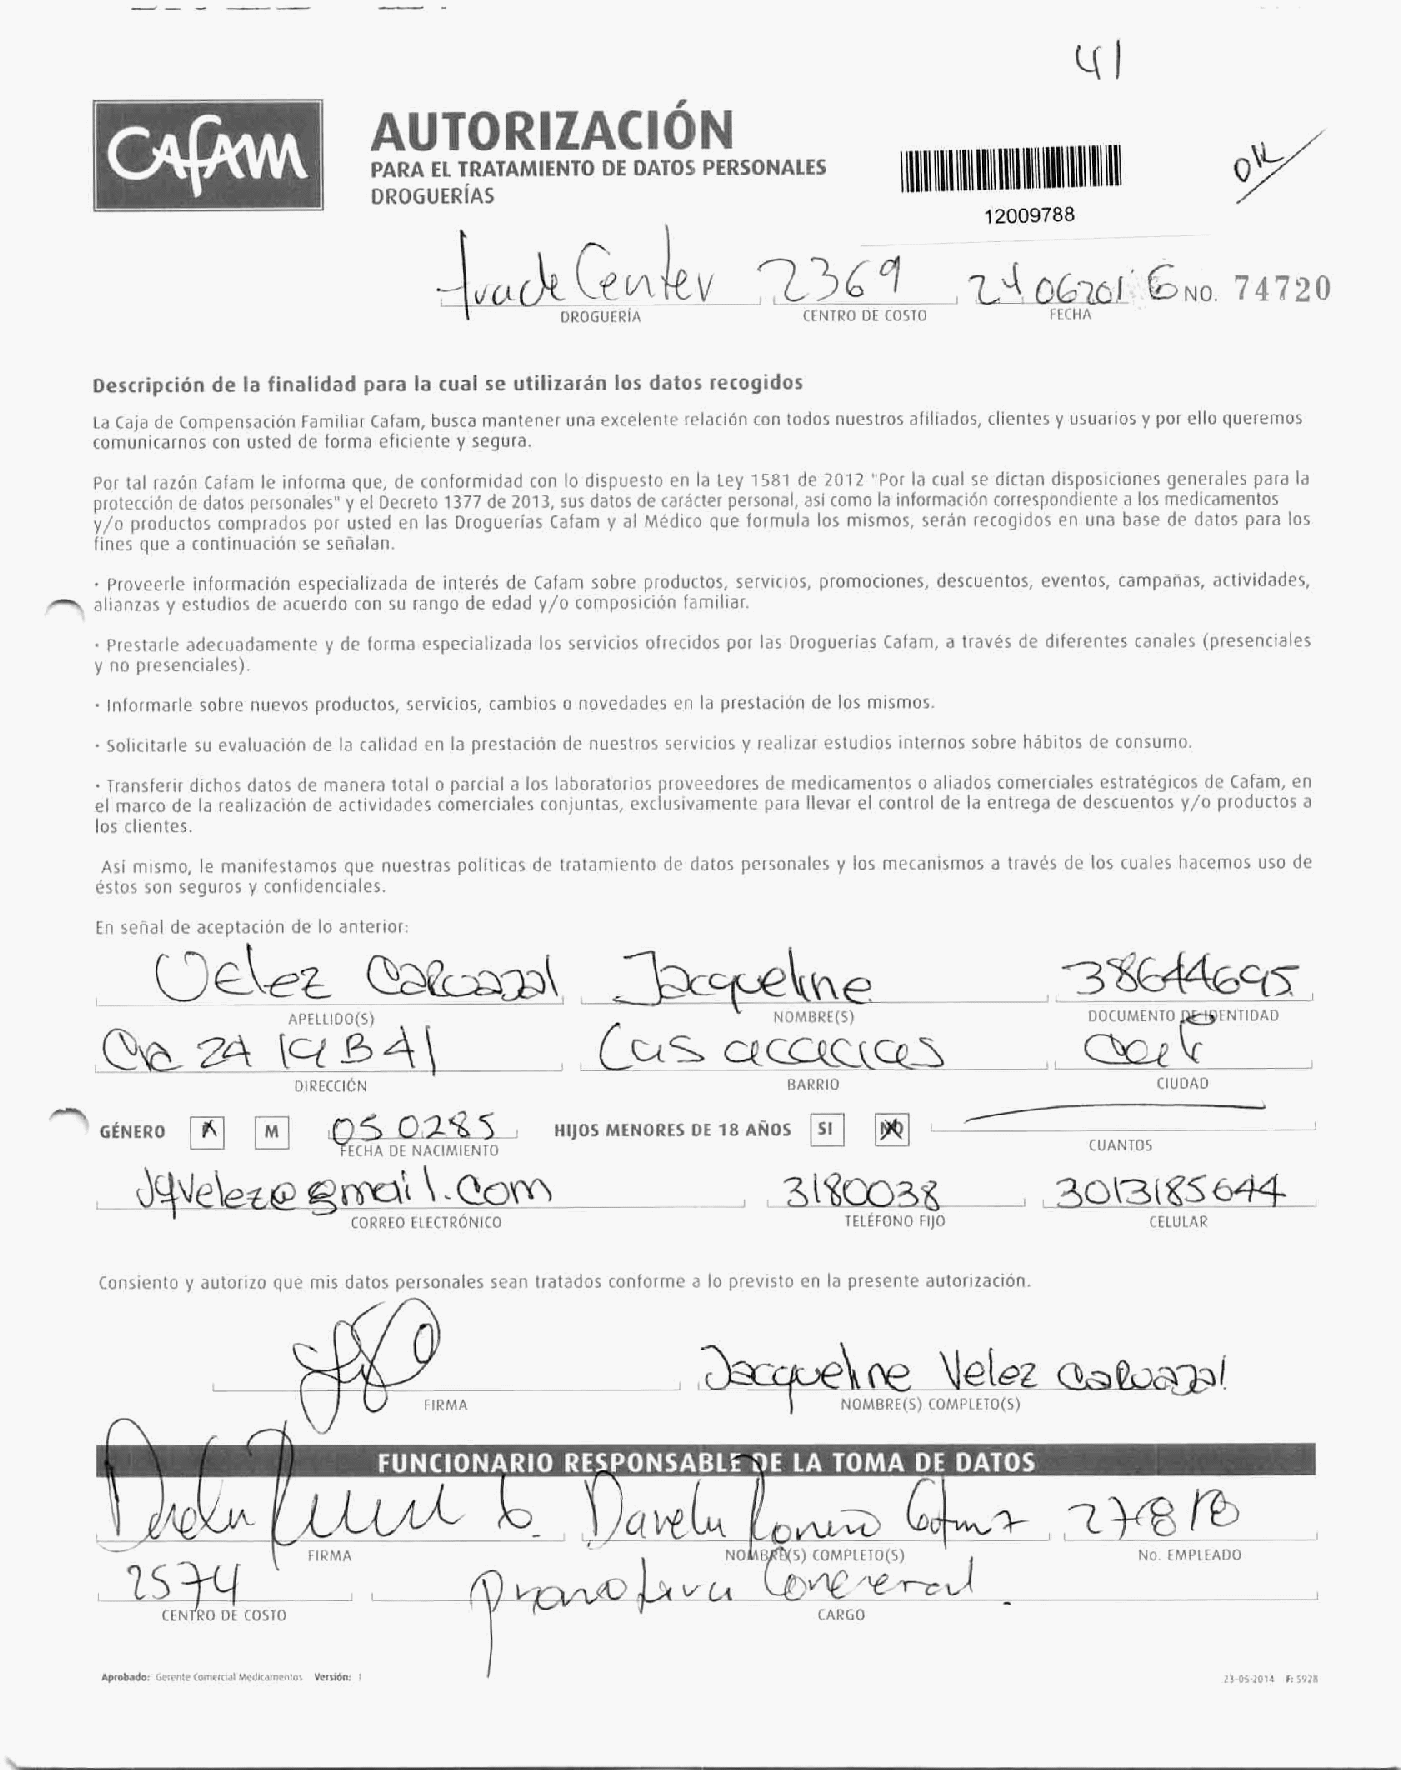 41
CAFAM
AUTORIZACIÓN
PARA EL TRATAMIENTO DE DATOS PERSONALES
DROGUERÍAS
12009788
OK
trade Center 2369 24062016 NO. 74720
DROGUERÍA CENTRO DE COSTO FECHA
Descripción de la finalidad para la cual se utilizarán los datos recogidos
La Caja de Compensación Familiar Cafam, busca mantener una excelente relación con todos nuestros afiliados, clientes y usuarios y por ello queremos
comunicarnos con usted de forma eficiente y segura.
Por tal razón Cafam le informa que, de conformidad con lo dispuesto en la Ley 1581 de 2012 "Por la cual se dictan disposiciones generales para la
protección de datos personales" y el Decreto 1377 de 2013, sus datos de carácter personal, así como la información correspondiente a los medicamentos
y/o productos comprados por usted en las Droguerías Cafam y al Médico que formula los mismos, serán recogidos en una base de datos para los
fines que a continuación se señalan.
· Proveerle información especializada de interés de Cafam sobre productos, servicios, promociones, descuentos, eventos, campañas, actividades,
alianzas y estudios de acuerdo con su rango de edad y/o composición familiar.
· Prestarle adecuadamente y de forma especializada los servicios ofrecidos por las Droguerías Cafam, a través de diferentes canales (presenciales
y no presenciales).
· Informarle sobre nuevos productos, servicios, cambios o novedades en la prestación de los mismos.
· Solicitarle su evaluación de la calidad en la prestación de nuestros servicios y realizar estudios internos sobre hábitos de consumo.
· Transferir dichos datos de manera total o parcial a los laboratorios proveedores de medicamentos o aliados comerciales estratégicos de Cafam, en
el marco de la realización de actividades comerciales conjuntas, exclusivamente para llevar el control de la entrega de descuentos y/o productos a
los clientes.
Así mismo, le manifestamos que nuestras políticas de tratamiento de datos personales y los mecanismos a través de los cuales hacemos uso de
éstos son seguros y confidenciales.
En señal de aceptación de lo anterior:
Velez Carvajal Jacqueline 38644695
APELLIDO(S) NOMBRE(S) DOCUMENTO DE IDENTIDAD
Cra 2A 19B41 Las acacias Cali
DIRECCIÓN BARRIO CIUDAD
GÉNERO X M 050285 HIJOS MENORES DE 18 AÑOS SI NO
FECHA DE NACIMIENTO CUANTOS
Jqvelez@gmail.com 3180038 3013185644
CORREO ELECTRÓNICO TELÉFONO FIJO CELULAR
Consiento y autorizo que mis datos personales sean tratados conforme a lo previsto en la presente autorización.
Jacqueline Velez Carvajal
FIRMA NOMBRE(S) COMPLETO(S)
FUNCIONARIO RESPONSABLE DE LA TOMA DE DATOS
27818
FIRMA NOMBRE(S) COMPLETO(S) No. EMPLEADO
2574
CENTRO DE COSTO CARGO
Aprobado: Gerente Comercial Medicamentos Versión: 1 23-05-2014 F: 5928